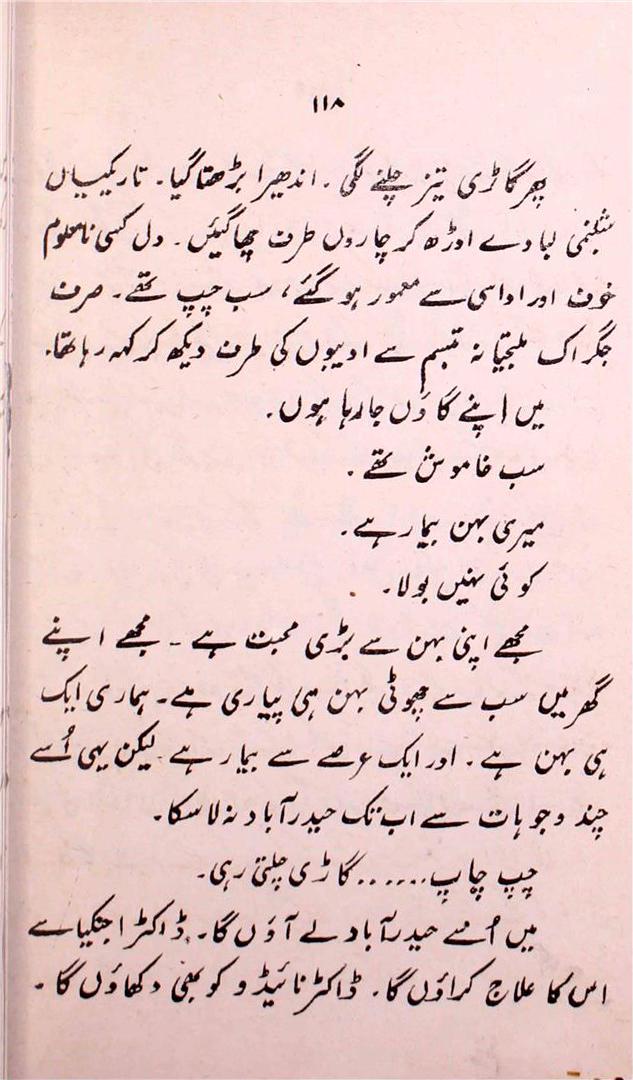 ۱۱۸
پھر گاڑی تیز چلنے لگی ۔ اندھیرا بڑھتا گیا ۔ تاریکیاں
شبنمی لبادے اوڑھ کر چاروں طرف چھا گیئں ۔ دل کسی نامعلوم
خوف اور اداسی سے معمور ہو گئے ، سب چپ تھے ۔ صرف
جگر اک ملتجیانہ تبسم سے ادیبوں کی طرف دیکھ کر کہہ رہا تھا۔
میں اپنے گاؤں جا رہا ہوں۔
سب خاموش تھے ۔
میری بہن بیمار ہے۔
کوئی نہیں بولا۔
مجھے اپنی بہن سے بڑی محبت ہے ۔ مجھے اپنے
گھر میں سب سے چھوٹی بہن ہی پیاری ہے۔ ہماری ایک
ہی بہن ہے ۔ اور ایک عرصے سے بیمار ہے لیکن یہی اُسے
چند وجوہات سے اب تک حیدرآباد نہ لا سکا۔
چپ چاپ ...... گاڑی چلتی رہی۔
میں اُسے حیدرآباد لے آؤں گا۔ ڈاکٹر اجنکیا سے
اس کا علاج کراؤں گا۔ ڈاکٹر نائیڈو کو بھی دکھاؤں گا ۔